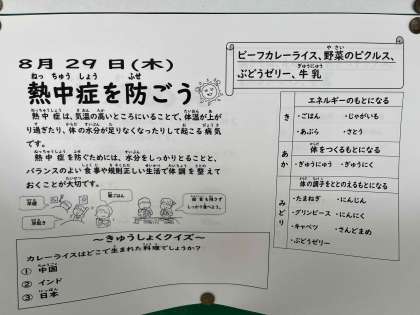 8月29日(木)
ねっちゅうしょう ふせ
熱中症を防ごう
ビーフカレーライス、野菜のピクルス、
ぶどうゼリー、牛乳
熱中症は、気温の高いところにいることで、体温が上が
り過ぎたり、体の水分が足りなくなったりして起こる病気
です。
熱中症を防ぐためには、水分をしっかりとることと、
バランスのよい食事や規則正しい生活で体調を整えて
おくことが大切です。
早寝
早起き
朝ごはん
給食も残さず
しっかり食べよう
～きゅうしょくクイズ～
カレーライスはどこで生まれた料理でしょうか?
① 中国
② インド
③ 日本
エネルギーのもとになる
き
・ごはん ・じゃがいも
・あぶら ・さとう
体をつくるもとになる
あか
・ぎゅうにゅう ・ぎゅうにく
体の調子をととのえるもとになる
みどり
・たまねぎ ・にんじん
・グリンピース ・にんにく
・キャベツ ・さんどまめ
・ぶどうゼリー